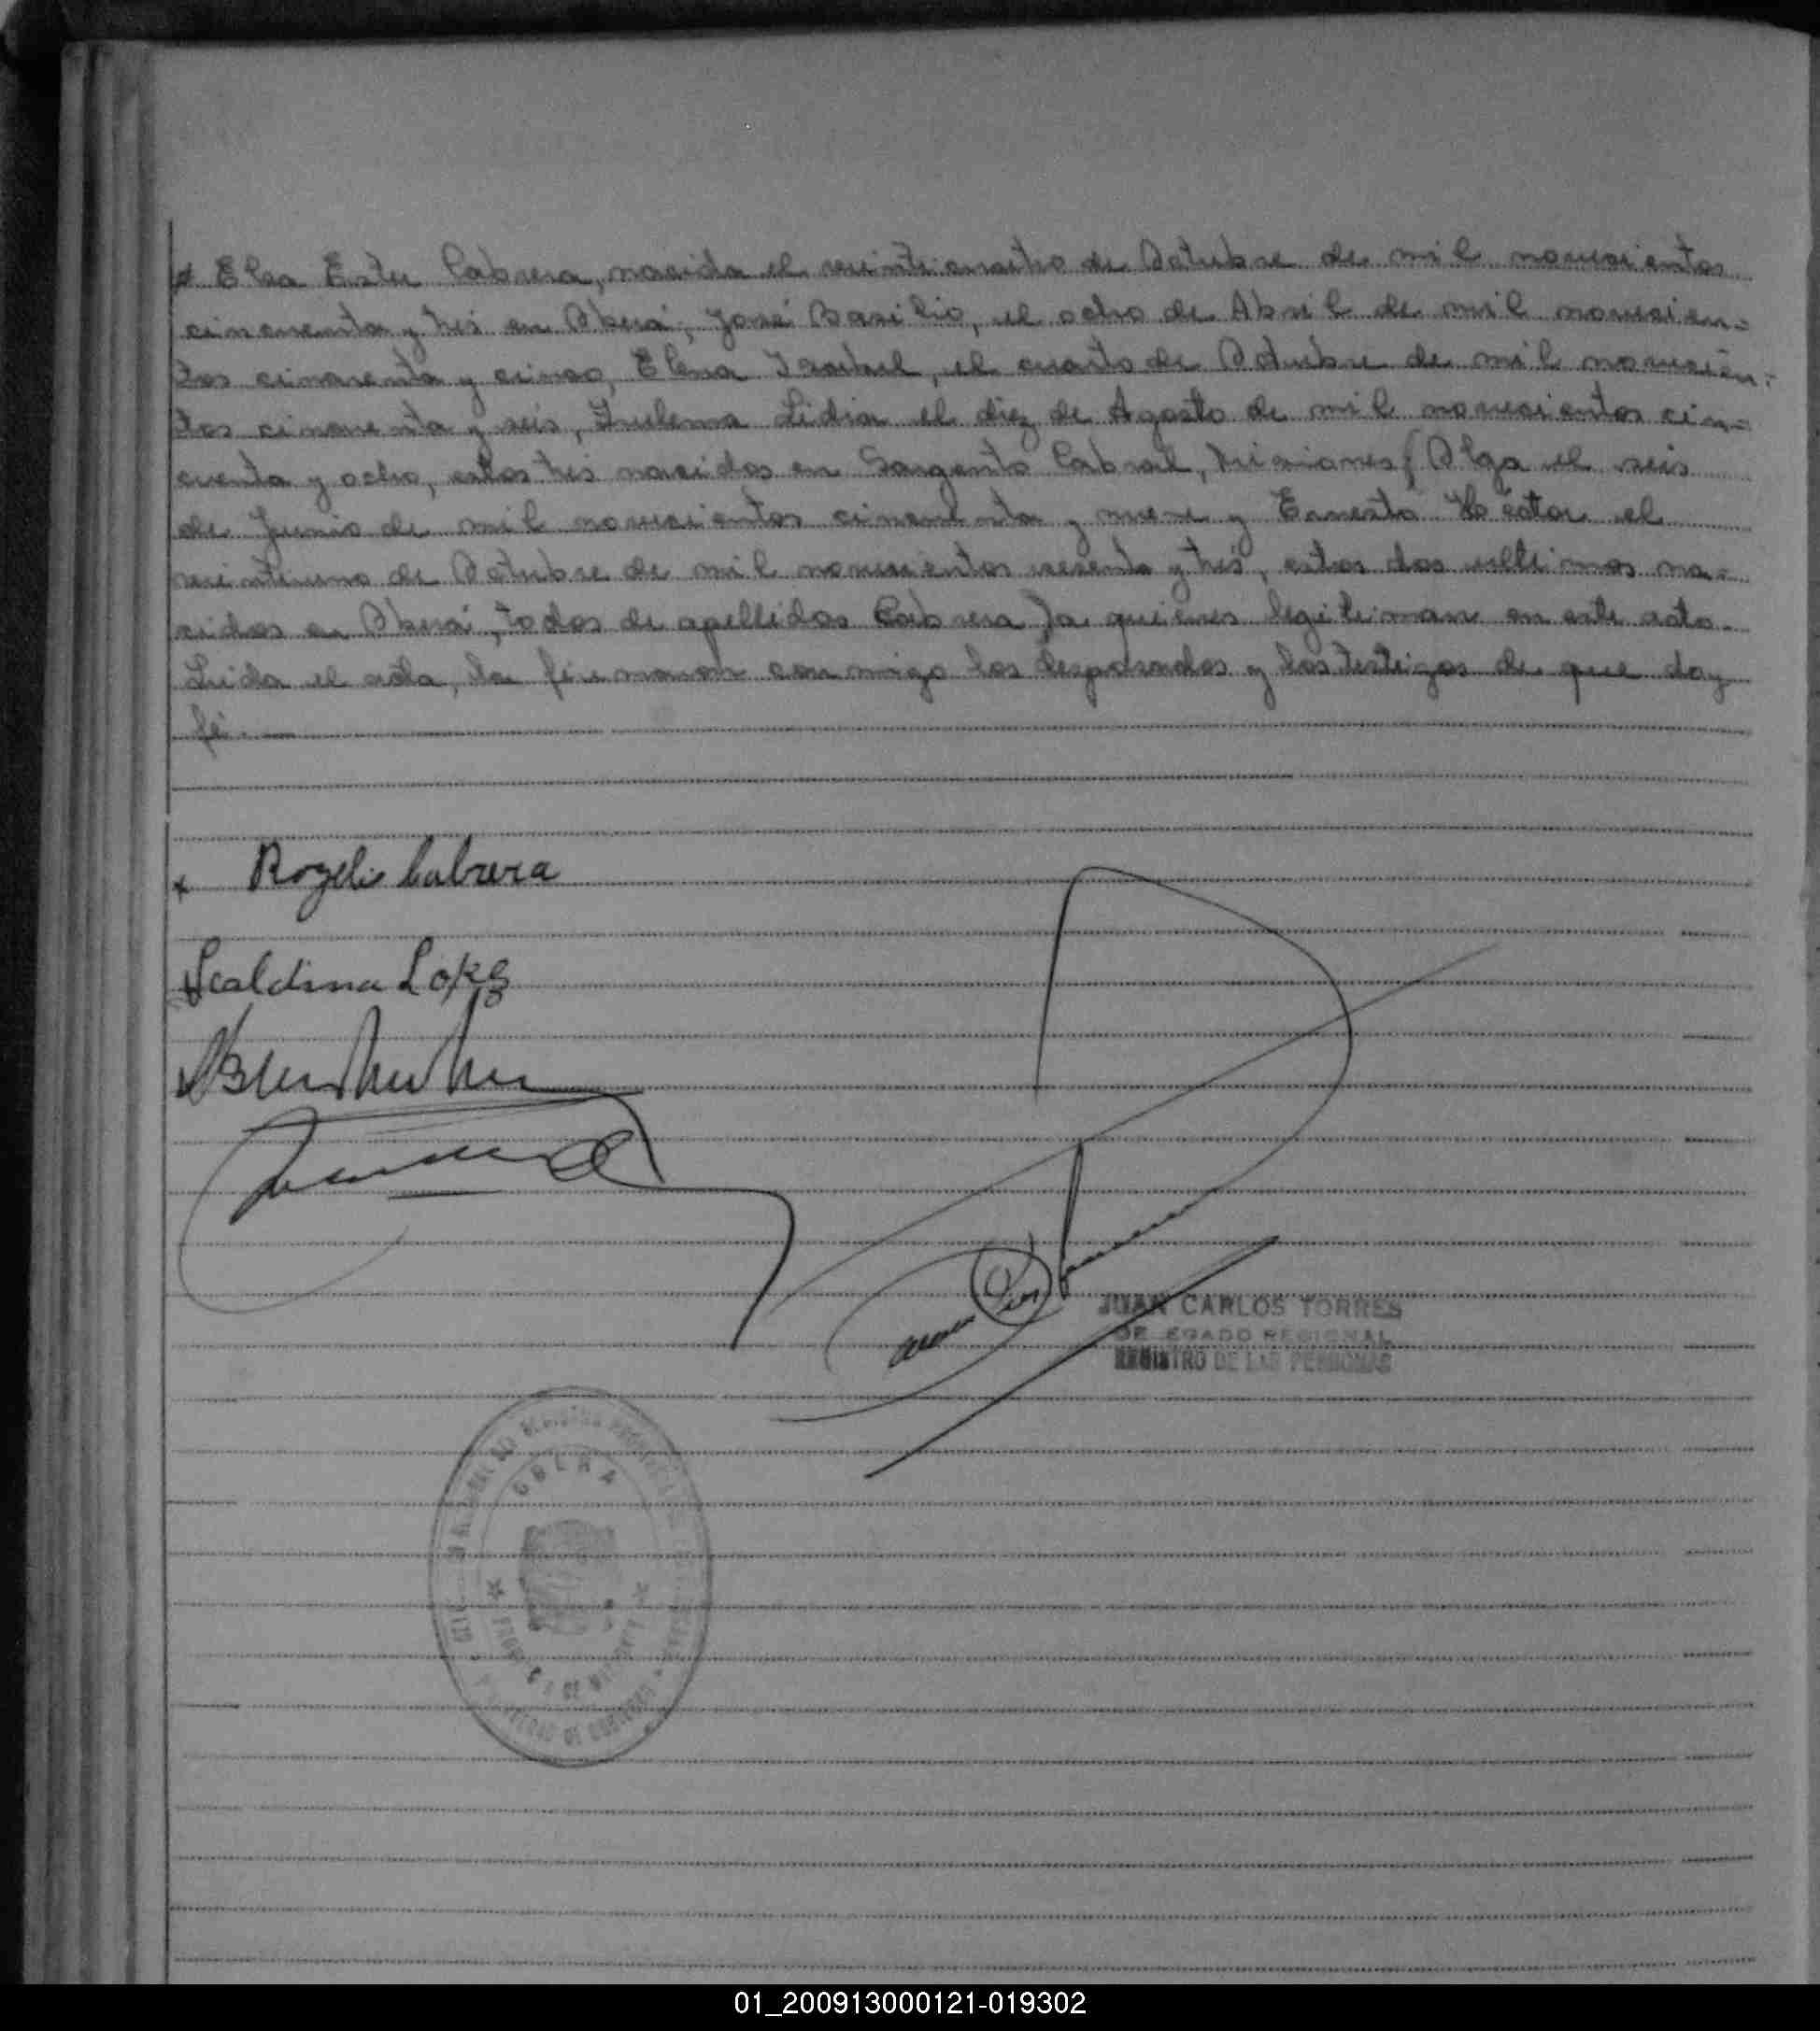 Elsa Ester Cabrera, nacida el veinticuatro de Octubre de mil novecientos
cincuenta y tres en Oberá, José Basilio, el ocho de Abril de mil novecien=
tos cincuenta y cinco, Elena Isabel, el cuatro de Octubre de mil novecien=
tos cincuenta y seis, Zulema Lidia el diez de Agosto de mil novecientos cin=
cuenta y ocho, estos tres nacidos en Sargento Cabral, Misiones, Olga el seis
de Junio de mil novecientos cincuenta y nueve y Ernesto Héctor el
veintiuno de Octubre de mil novecientos sesenta y tres, estos dos ultimos na=
cidos en Oberá, todos de apellidos Cabrera, a quienes legitiman en este acto.
Leida el acta, la firmaron conmigo los desposados y los testigos de que doy
fé.
Rogelio Cabrera
JUAN CARLOS TORRES
DELEGADO REGIONAL
REGISTRO DE LAS PERSONAS
OBERA
01_200913000121-019302